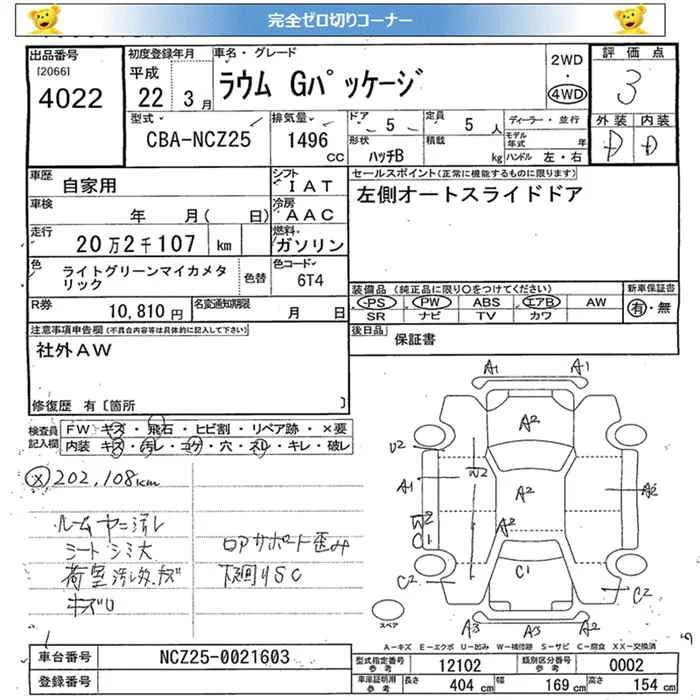 完全ゼロ切りコーナー
出品番号
[2066]
4022
初度登録年月
平成
22 3月
車名・グレード
ラウム Gパッケージ
2WD
・
4WD
評価点
3
外装 内装
D D
型式
CBA-NCZ25
排気量
1496
CC
ドア
5
定員
5 人
形状
ハッチB
積載
kg
ディーラー・並行
モデル年式 年
ハンドル 左・右
車歴
自家用
シフト
I A T
車検
年 月( 日)
冷房
A A C
走行
20万2千107 km
燃料
ガソリン
色
ライトグリーンマイカメタリック
色替
色コード
6T4
R券
10,810円
名変通知期限
月 日
セールスポイント(正常に機能するものに限ります)
左側オートスライドドア
装備品 (純正品に限り○をつけてください)
PS PW ABS エアB AW
SR ナビ TV カワ
新車保証書
有・無
後日品
保証書
注意事項申告欄(不具合内容等は具体的に記入して下さい)
社外AW
修復歴 有〔箇所 〕
検査員記入欄
FW キズ・飛石・ヒビ割・リペア跡・×要
内装 キズ・汚レ・コゲ・穴・スレ・キレ・破レ
202,108km
ルームヤニ汚レ
シートシミ大
荷室汚レ
キズU
ロアサポート歪み
下廻りSC
A1 A1
A2
U2
A1
W2
A2
A2
W2
C1
A2
C1
C2
C2
A3 A3 A2
スペア
A-キズ E-エクボ U-凹み W-補修跡 S-サビ C-腐食 XX-交換済
車台番号
NCZ25-0021603
登録番号
型式指定番号
参考
12102
類別区分番号
参考
0002
車庫証明用
参考
長さ
404 cm
幅
169 cm
高さ
154 cm